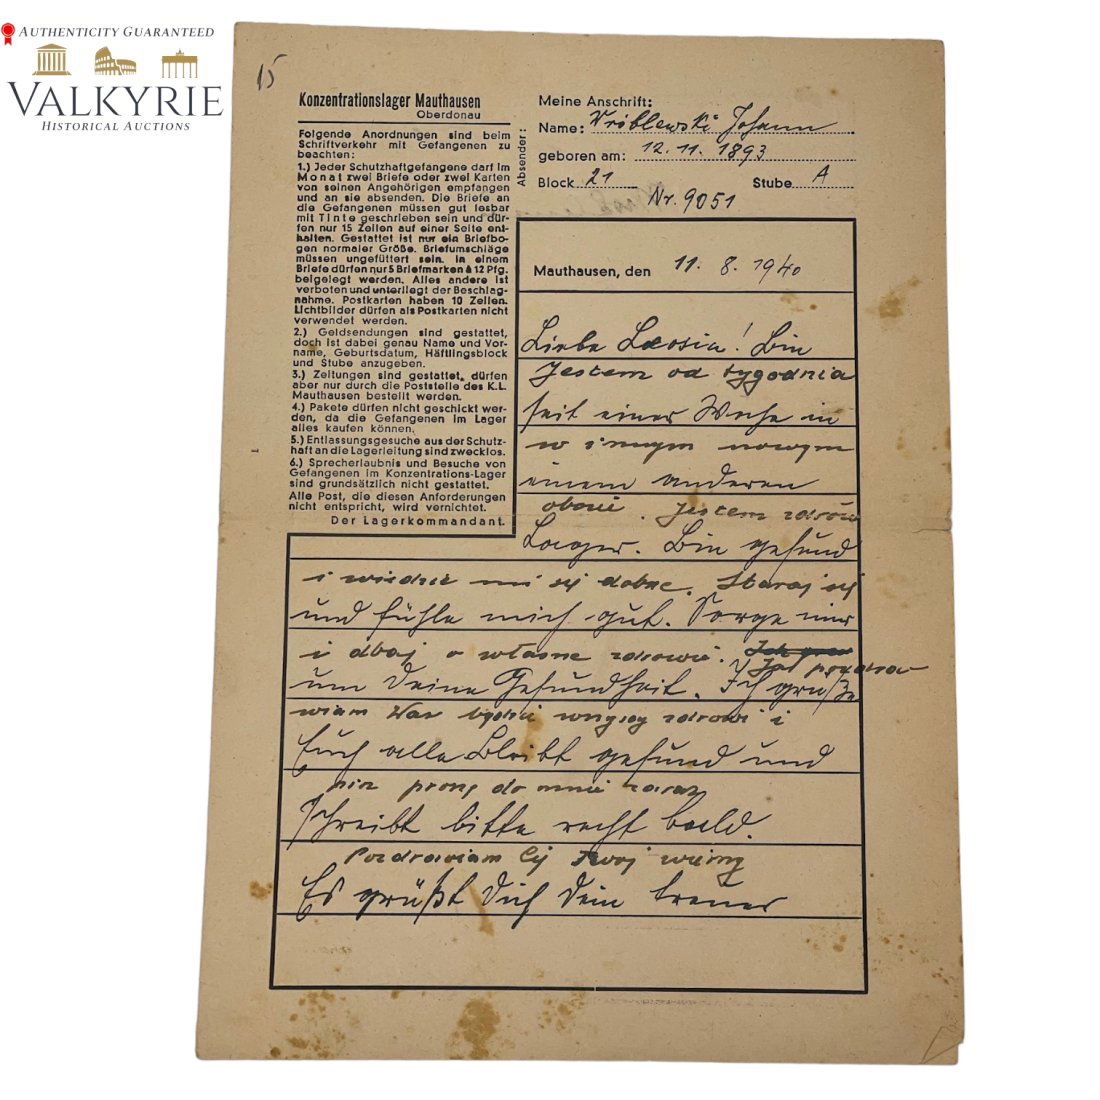 AUTHENTICITY GUARANTEED
VALKYRIE
HISTORICAL AUCTIONS
15
Konzentrationslager Mauthausen
Oberdonau
Folgende Anordnungen sind beim
Schriftverkehr mit Gefangenen zu
beachten:
1.) Jeder Schutzhaftgefangene darf im
Monat zwei Briefe oder zwei Karten
von seinen Angehörigen empfangen
und an sie absenden. Die Briefe an
die Gefangenen müssen gut lesbar
mit Tinte geschrieben sein und dür-
fen nur 15 Zeilen auf einer Seite ent-
halten. Gestattet ist nur ein Briefbo-
gen normaler Größe. Briefumschläge
müssen ungefüttert sein. In einem
Briefe dürfen nur 5 Briefmarken à 12 Pfg.
beigelegt werden. Alles andere ist
verboten und unterliegt der Beschlag-
nahme. Postkarten haben 10 Zeilen.
Lichtbilder dürfen als Postkarten nicht
verwendet werden.
2.) Geldsendungen sind gestattet,
doch ist dabei genau Name und Vor-
name, Geburtsdatum, Häftlingsblock
und Stube anzugeben.
3.) Zeitungen sind gestattet, dürfen
aber nur durch die Poststelle des K.L.
Mauthausen bestellt werden.
4.) Pakete dürfen nicht geschickt wer-
den, da die Gefangenen im Lager
alles kaufen können.
5.) Entlassungsgesuche aus der Schutz-
haft an die Lagerleitung sind zwecklos.
6.) Sprecherlaubnis und Besuche von
Gefangenen im Konzentrations-Lager
sind grundsätzlich nicht gestattet.
Alle Post, die diesen Anforderungen
nicht entspricht, wird vernichtet.
Der Lagerkommandant.
Absender:
Meine Anschrift:
Name: Wróblewski Johann
geboren am: 12. 11. 1893
Block 21 Stube A
Nr. 9051
Mauthausen, den 11. 8. 1940
Liebe ! Bin
Jestem od tygodnia
seit einer Woche in
w innym nowym
einem anderen
obozie. Jestem zdrów
Lager. Bin gesund
i wiedzie mi się dobrze. Staraj się
und fühle mich gut. Sorge nur
i dbaj o własne zdrowie.
Ja pozdra
um Deine Gesundheit. Ich grüße
wiam Was bądźcie wszyscy zdrowi i
Euch alle Bleibt gesund und
proszę do mnie zaraz
schreibt bitte recht bald.
Pozdrawiam Cię Twój wierny
Es grüßt Dich Dein treuer